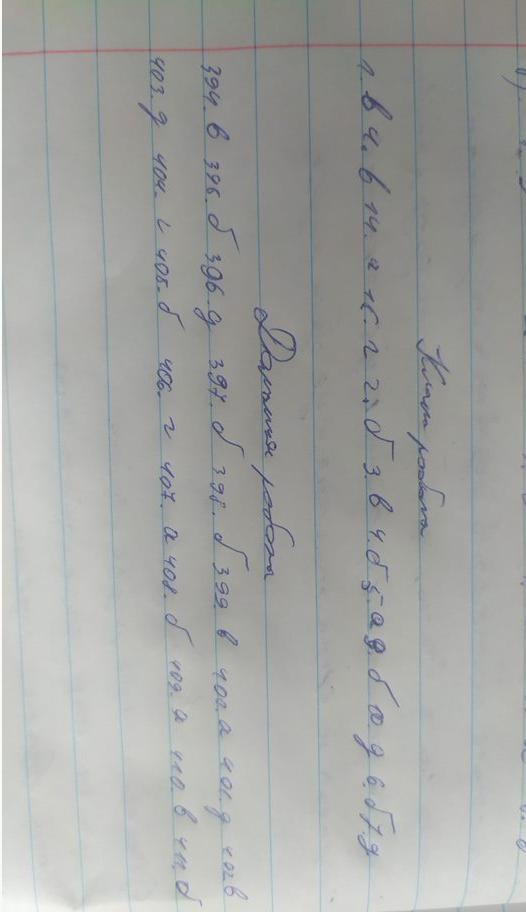 Класна робота
1. в 4. в 14. г 15. г 2. б 3. в 4. б 5. а 9. б 10. д 6. б 7. д
Домашня робота
394. в 395. б 396. д 397. б 398. б 399. в 400. а 401. д 402. в
403. д 404. г 405. б 406. г 407. а 408. б 409. а 410. в 411. б